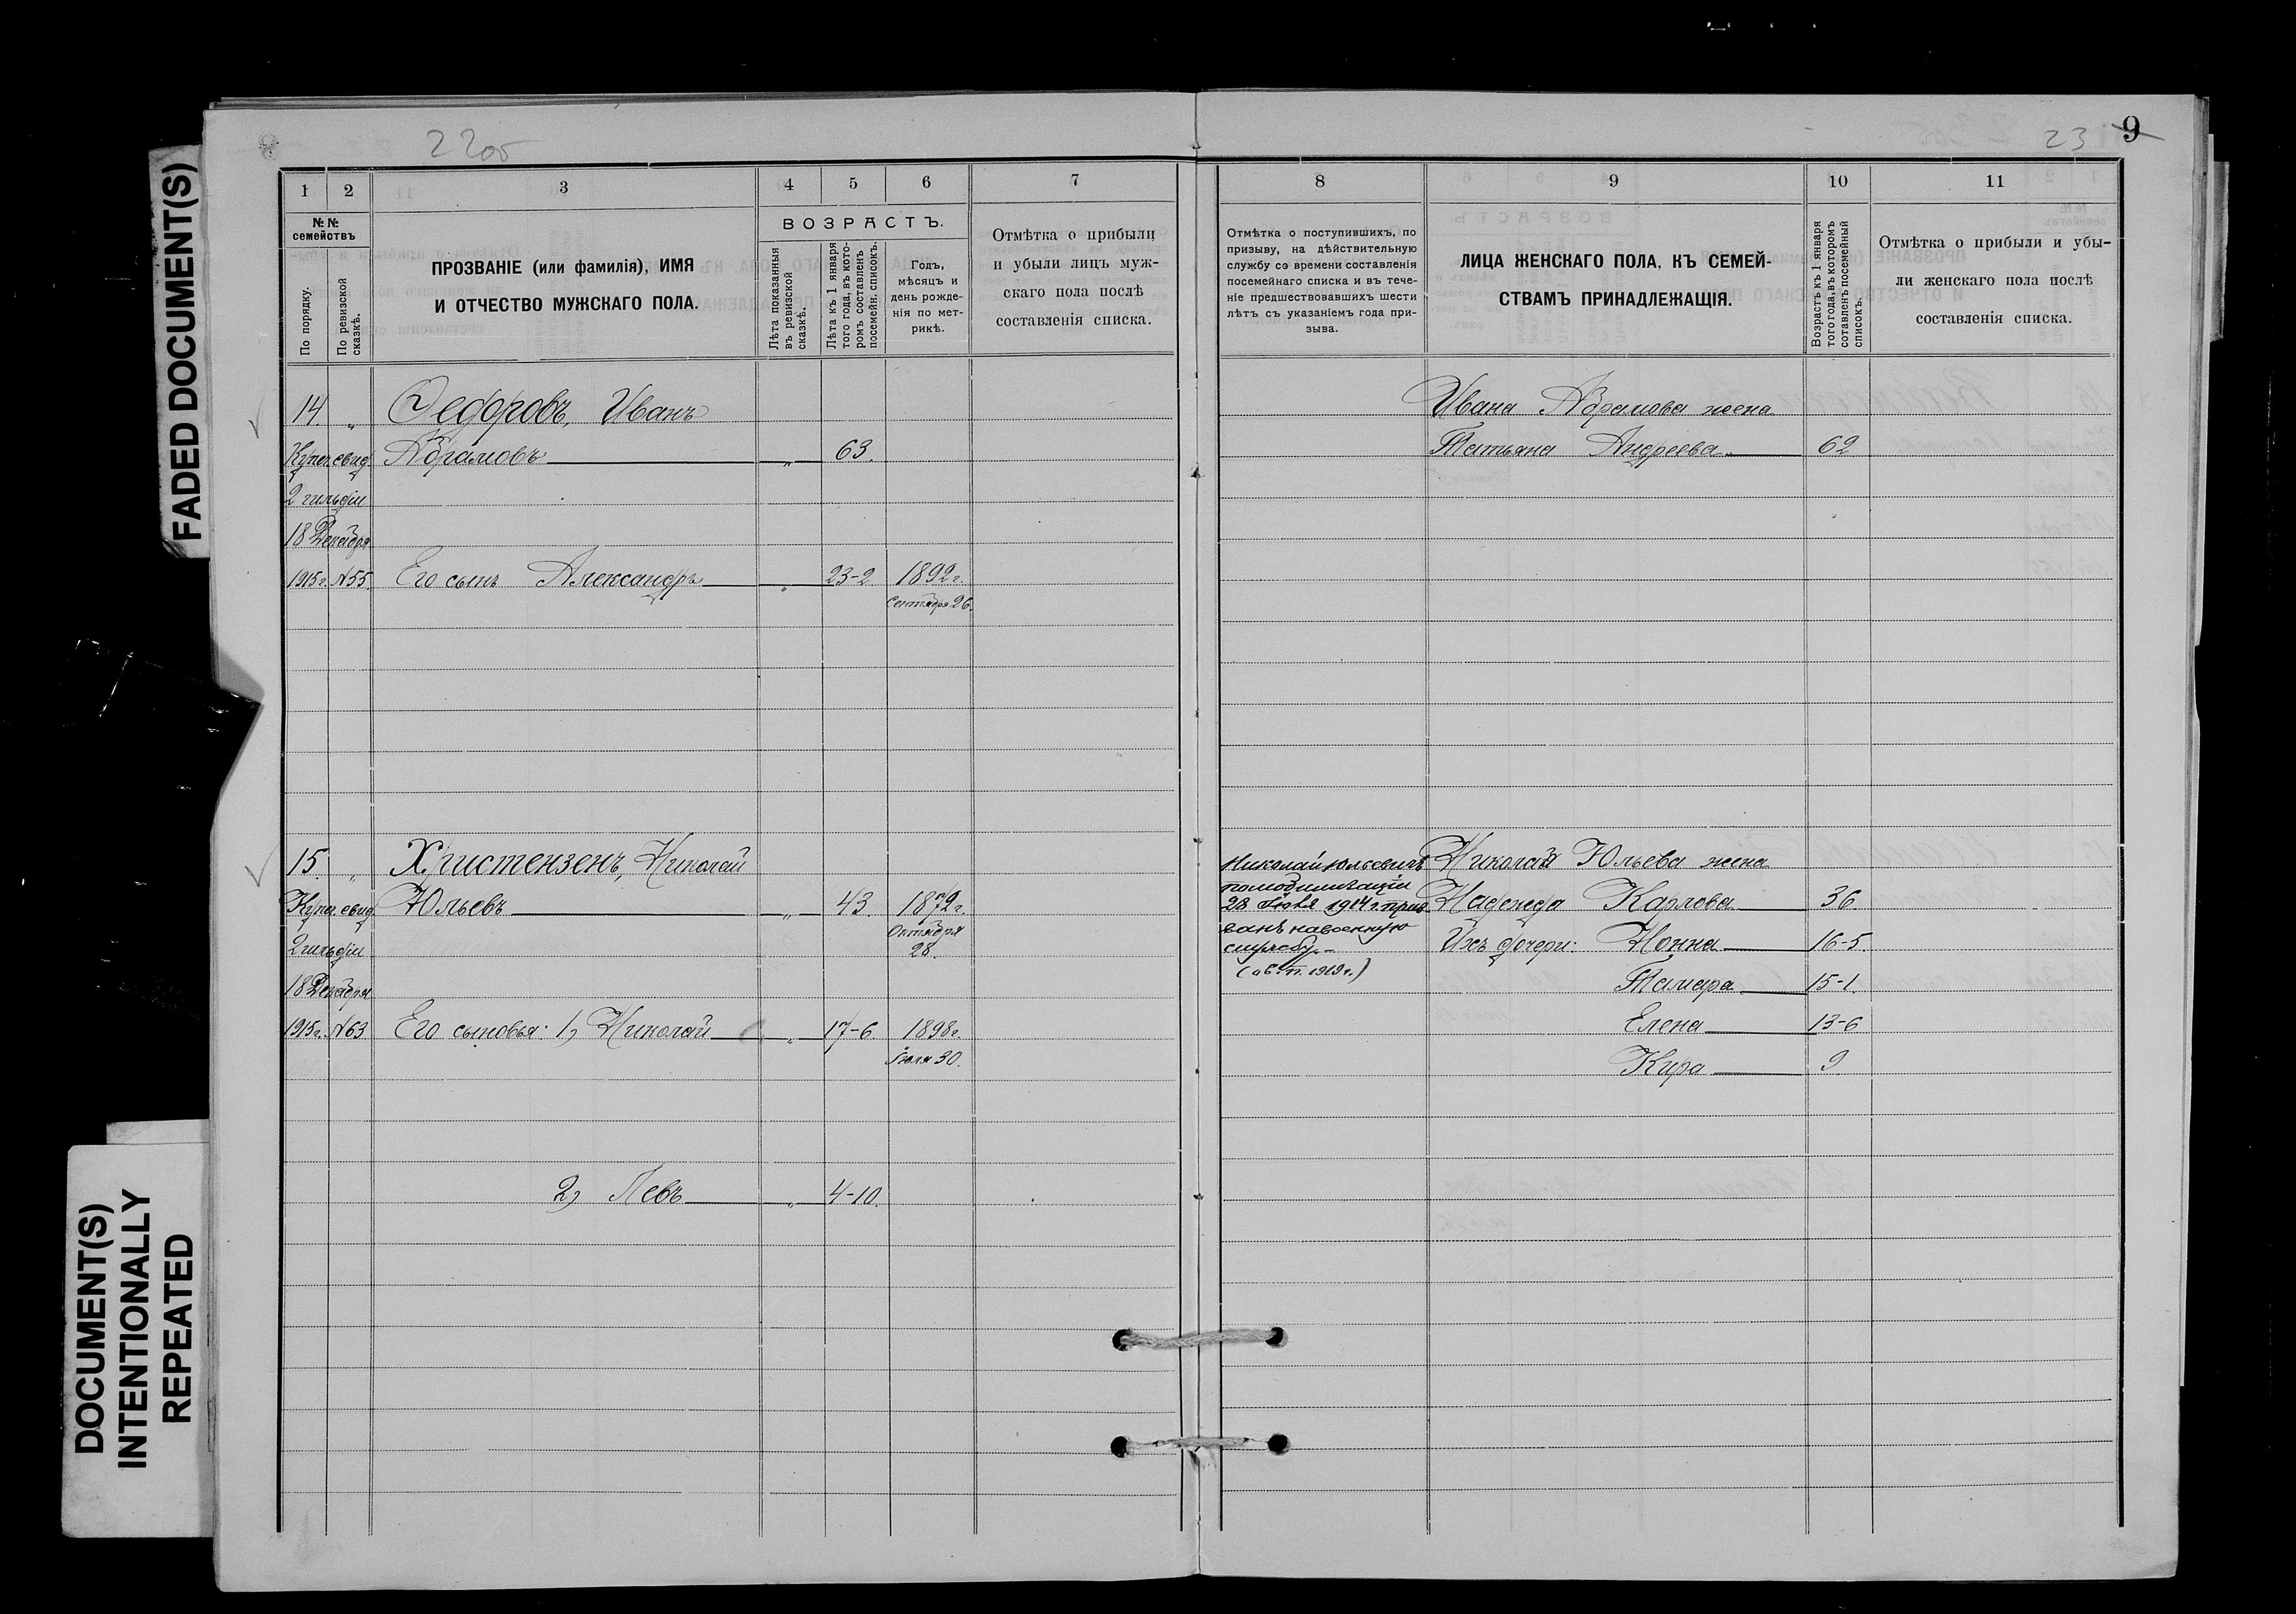 22об
23 9
FADED DOCUMENT(S)
DOCUMENT(S)
INTENTIONALLY
REPEATED
1 2 3 4 5 6 7
№ №
семействъ
По порядку.
По ревизской
сказкѣ.
ПРОЗВАНІЕ (или фамилія), ИМЯ
И ОТЧЕСТВО МУЖСКАГО ПОЛА.
ВОЗРАСТЪ.
Лѣта показанныя
въ ревизской
сказкѣ.
Лѣта къ 1 января
того года, въ кото-
ромъ составленъ
посемейн. списокъ.
Годъ,
мѣсяцъ и
день рожде-
нія по мет-
рикѣ.
Отмѣтка о прибыли
и убыли лицъ муж-
скаго пола послѣ
составленія списка.
14. „ Федоровъ, Иванъ
Купеч. свид. Абрамовъ „ 63.
2 гильдіи
18 Декабря
1915 г. №55. Его сынъ Александръ „ 23-2 1892 г.
Сентября 26.
15. „ Христензенъ, Николай
Купеч. свид. Юльевъ „ 43. 1872 г.
Октября
2 гильдіи 28.
18 Декабря
1915 г. №63. Его сыновья: 1, Николай „ 17-6. 1898 г.
Іюля 30.
2, Левъ „ 4-10.
8 9 10 11
Отмѣтка о поступившихъ, по
призыву, на дѣйствительную
службу со времени составленія
посемейнаго списка и въ тече-
ніе предшествовавшихъ шести
лѣтъ съ указаніемъ года при-
зыва.
ЛИЦА ЖЕНСКАГО ПОЛА, КЪ СЕМЕЙ-
СТВАМЪ ПРИНАДЛЕЖАЩІЯ.
Возрастъ къ 1 января
того года, въ которомъ
составленъ посемейный
списокъ.
Отмѣтка о прибыли и убы-
ли женскаго пола послѣ
составленія списка.
Ивана Абрамова жена
Татьяна Андреева 62
Николай Юльевичъ
по мобилизаціи
28 Іюля 1914 г. приз-
ванъ на военную
службу.
Николая Юльева жена
Надежда Карлова 36.
Ихъ дочери: Нонна 16-5.
Тамара 15-1.
Елена 13-6
Кира 9